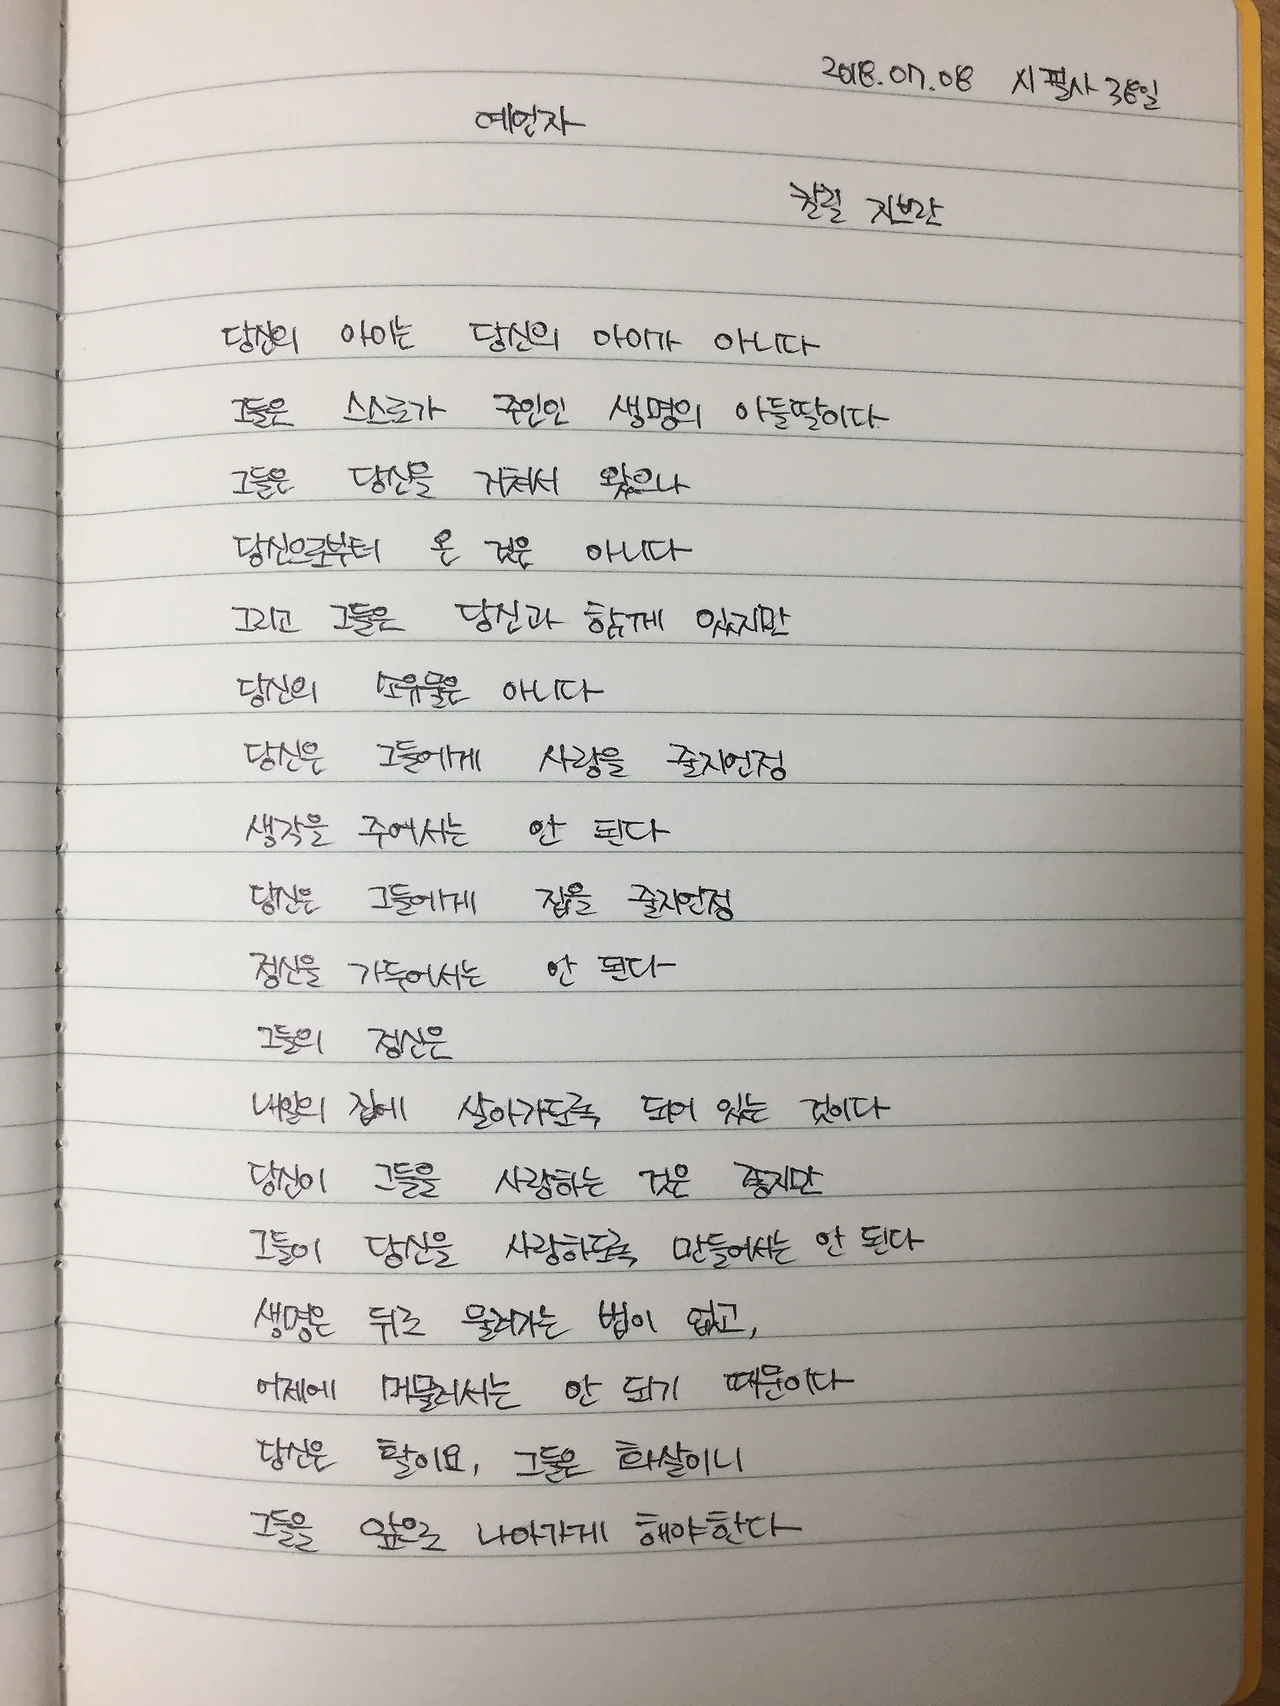 2018.07.08 시필사 38일
예언자
칼릴 지브란
당신의 아이는 당신의 아이가 아니다
그들은 스스로가 주인인 생명의 아들딸이다
그들은 당신을 거쳐서 왔으나
당신으로부터 온 것은 아니다
그리고 그들은 당신과 함께 있지만
당신의 소유물은 아니다
당신은 그들에게 사랑을 줄지언정
생각을 주어서는 안 된다
당신은 그들에게 집을 줄지언정
정신을 가두어서는 안 된다
그들의 정신은
내일의 집에 살아가도록 되어 있는 것이다
당신이 그들을 사랑하는 것은 좋지만
그들이 당신을 사랑하도록 만들어서는 안 된다
생명은 뒤로 물러가는 법이 없고,
어제에 머물러서는 안 되기 때문이다
당신은 활이요, 그들은 화살이니
그들을 앞으로 나아가게 해야한다